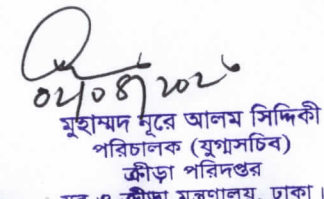 ০২/০৪/২০২৬
মুহাম্মদ নূরে আলম সিদ্দিকী
পরিচালক (যুগ্মসচিব)
ক্রীড়া পরিদপ্তর
যুব ও ক্রীড়া মন্ত্রণালয়, ঢাকা।